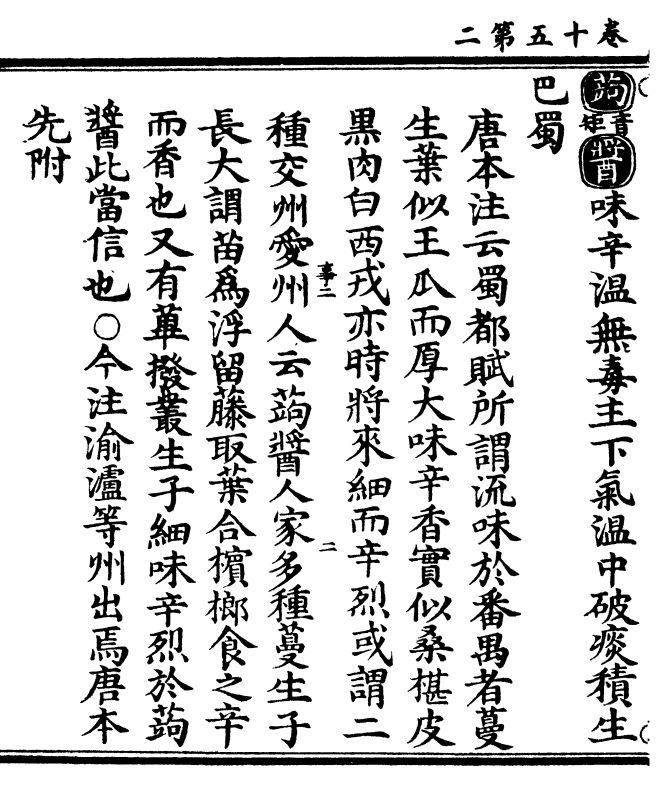 卷十五第二
蒟音矩醬味辛温無毒主下氣温中破痰積生
巴蜀
唐本注云蜀都賦所謂流味於番禺者蔓
生葉似王瓜而厚大味辛香實似桑椹皮
黒肉白西戎亦時將來細而辛烈或謂二
種交州愛州人云蒟醬人家多種蔓生子
長大謂苗爲浮留藤取葉合檳榔食之辛
而香也又有蓽撥叢生子細味辛烈於蒟
醬此當信也○今注渝瀘等州出焉唐本
先附